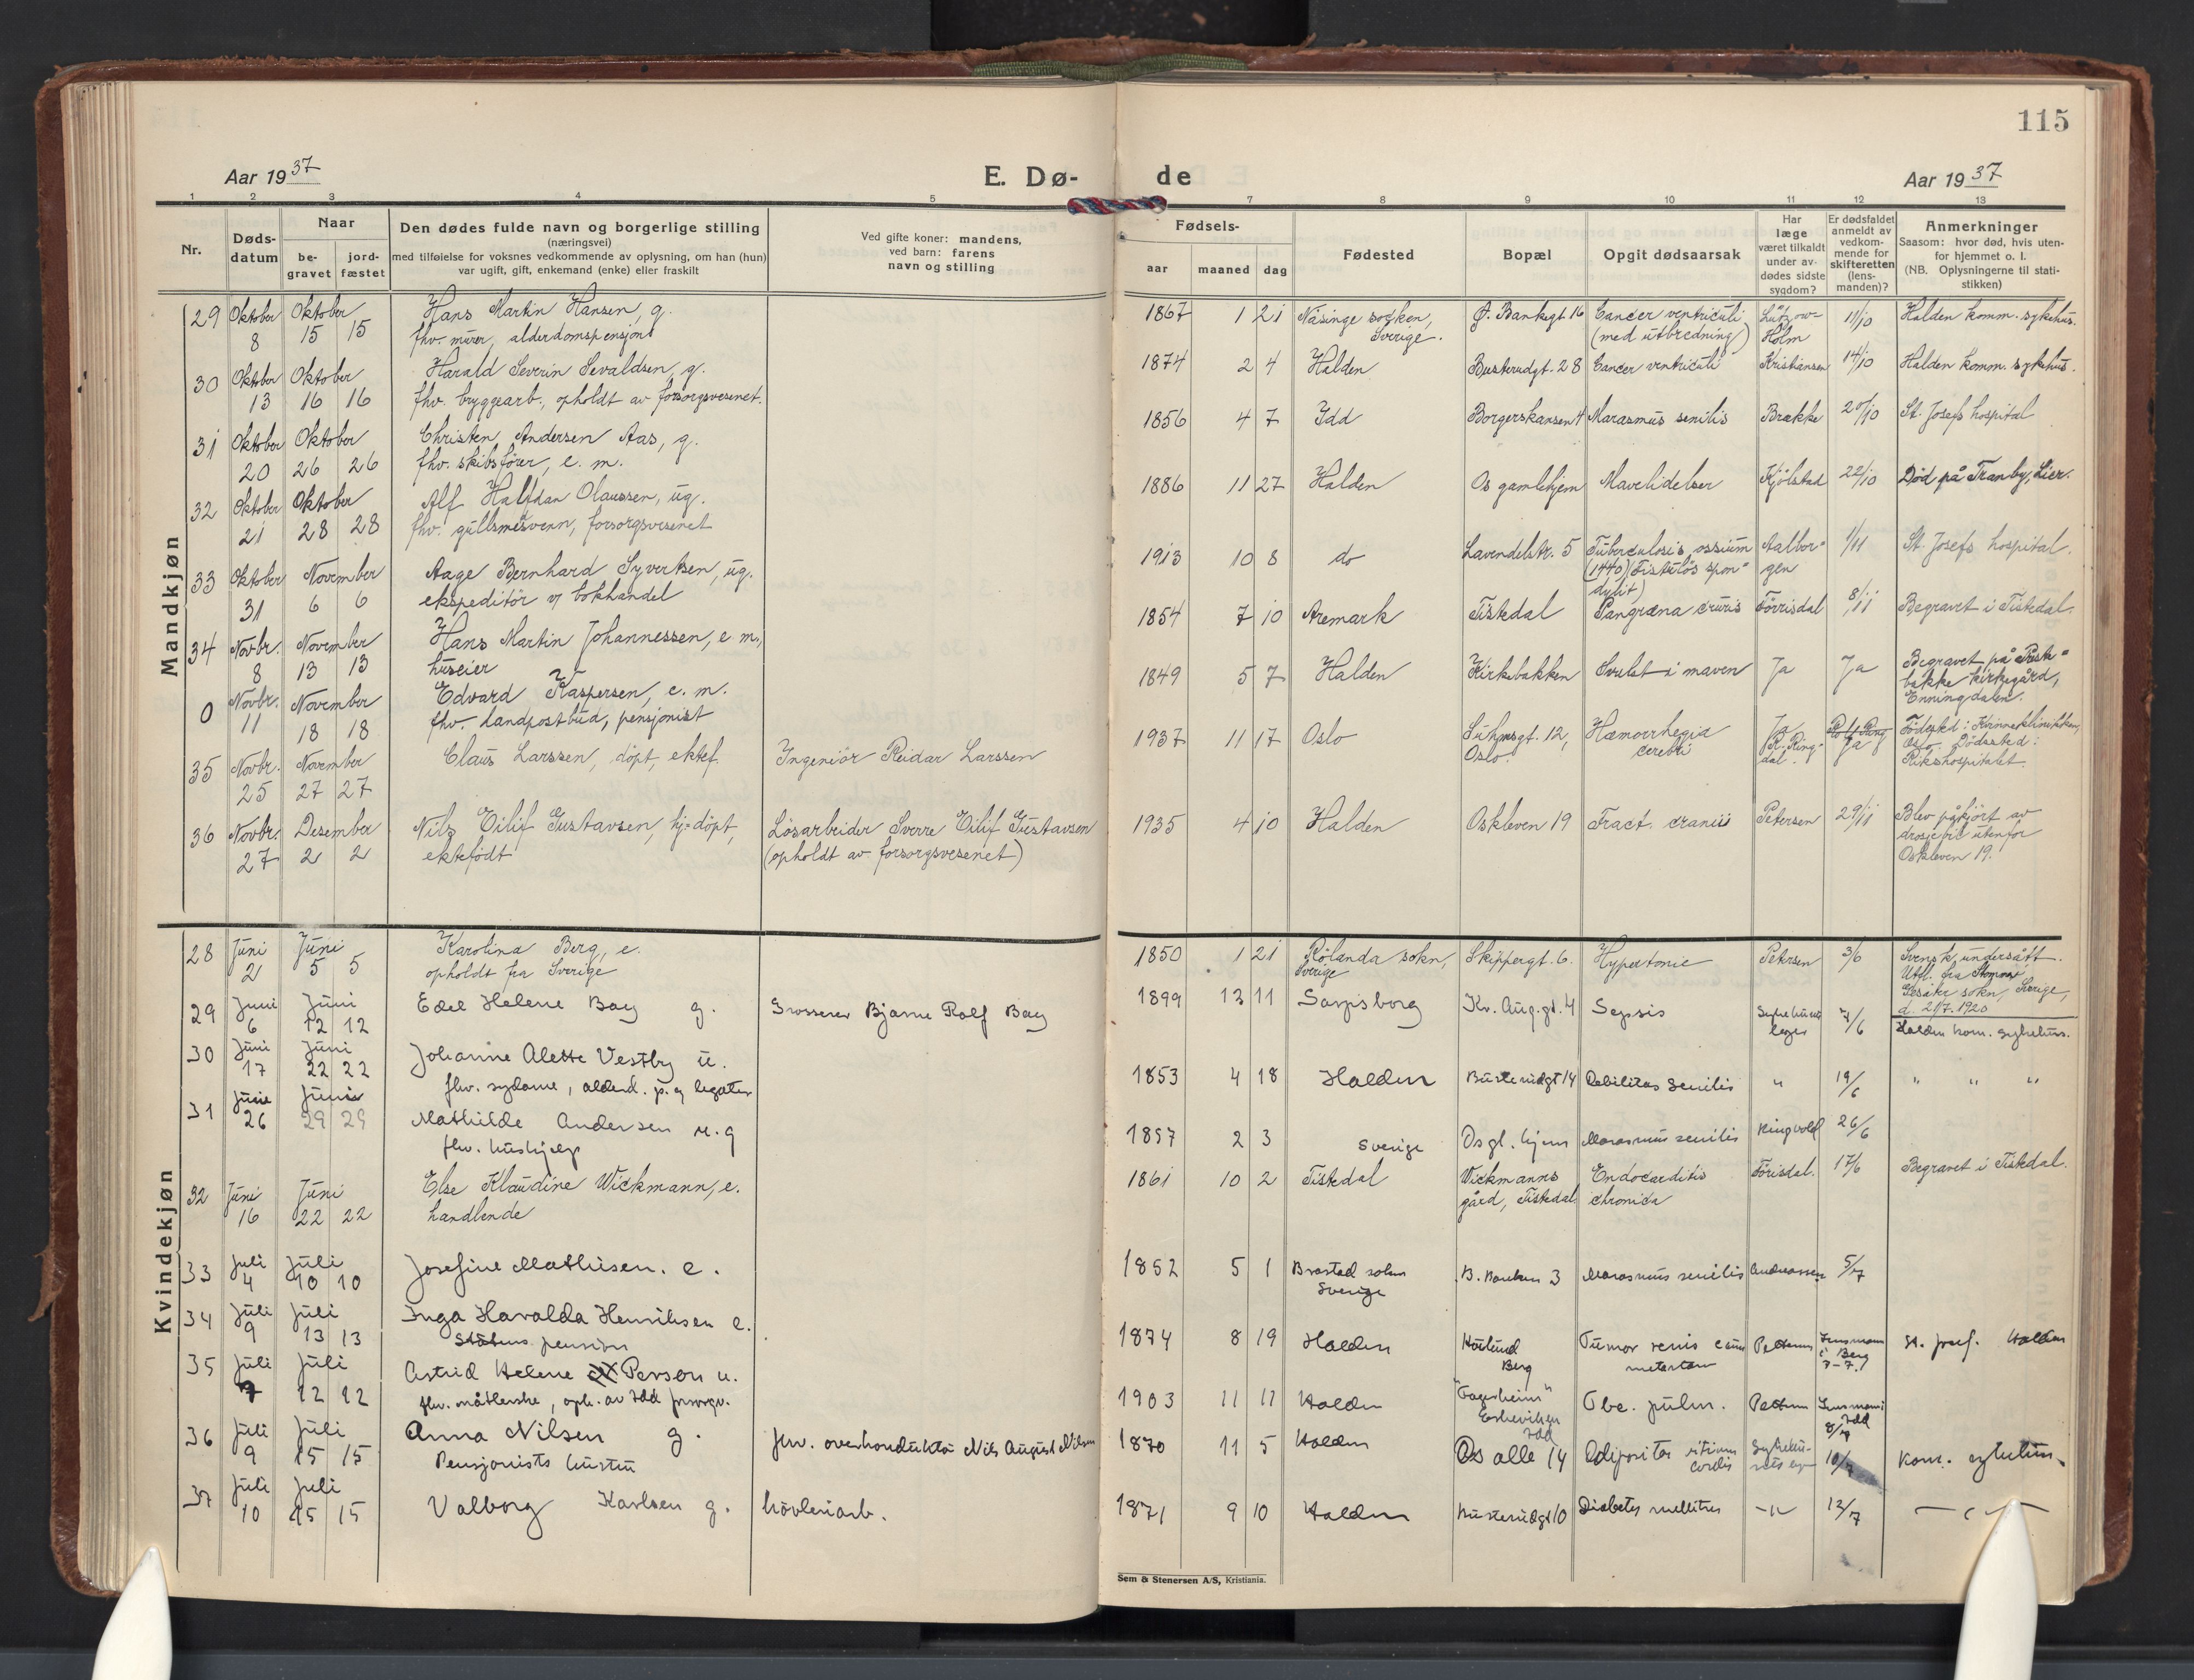 115
Aar 1937
E. Dø-
de
Aar 1937
1 2 3 4 5 7 8 9 10 11 12 13
Nr.
Døds-
datum
Naar
be-
gravet
jord-
fæstet
Den dødes fulde navn og borgerlige stilling
(næringsvei)
med tilføielse for voksnes vedkommende av oplysning, om han (hun)
var ugift, gift, enkemand (enke) eller fraskilt
Ved gifte koner: mandens,
ved barn: farens
navn og stilling
Fødsels-
aar maaned dag
Fødested
Bopæl
Opgit dødsaarsak
Har
læge
været tilkaldt
under av-
dødes sidste
sygdom?
Er dødsfaldet
anmeldt av
vedkom-
mende for
skifteretten
(lens-
manden)?
Anmerkninger
Saasom: hvor død, hvis uten-
for hjemmet o. l.
(NB. Oplysningerne til stati-
stikken)
Mandkjøn
29 Oktober Oktober Hans Martin Hansen, g. 1867 1 21 Näsinge socken, Ø. Bankegt 16 Cancer ventriculi Lützow- 11/10 Halden komm. sykehus.
8 15 15 fhv. murer, alderdomspensjonist Sverige. (med utbredning) Holm
30 Oktober Oktober Harald Severin Sevaldsen, g. 1874 2 4 Halden Busterudgt. 28 Cancer ventriculi Kristiansen 14/10 Halden komm. sykehus.
13 16 16 fhv. bryggearb., opholdt av forsorgsvesenet.
31 Oktober Oktober Christen Andersen Aas, g. 1856 4 7 Idd Borgerskansen 4 Marasmus senilis Brække 20/10 St. Josefs hospital
20 26 26 fhv. skibsfører, e. m.
32 Oktober Oktober Alf Halfdan Olaussen, ug. 1886 11 27 Halden Os gamlehjem Mavelidelser Kjølstad 22/10 Død på Tranby, Lier.
21 28 28 fhv. gullsmedsvenn, forsorgsvesenet
33 Oktober November Aage Bernhard Syvertsen, ug. 1913 10 8 do Lavendelstr. 5 Tuberculosis ossium Aalbor- 1/11 St. Josefs hospital.
31 6 6 ekspeditör v/ bokhandel (1440) (Fistulös spon- gen
dylit)
34 Novbr. November Hans Martin Johannessen, e m., 1854 7 10 Aremark Tistedal Gangræna cruris Førrisdal 8/11 Begravet i Tistedal.
8 13 13 huseier
0 Novbr. November Edvard Kaspersen, e. m. 1849 5 7 Halden Kirkebakken Svulst i maven Ja Ja Begravet på Prest-
11 18 18 fhv. landpostbud, pensjonist bakke kirkegård,
Enningdalen.
35 Novbr. November Claus Larssen, döpt, ektef. Ingeniör Reidar Larssen 1937 11 17 Oslo Suhmsgt. 12, Hæmorrhegia Ja Ja Födested: Kvinneklinikken,
25 27 27 Oslo. cerebri R. Ring- Oslo. Dödssted:
dal. Rikshospitalet.
36 Novbr. Desember Nils Eilif Gustavsen, hj-döpt, Løsarbeider Sverre Eilif Gustavsen 1935 4 10 Halden Oskleven 19 Fract. cranii Petersen 29/11 Blev påkjørt av
27 2 2 ektefödt (opholdt av forsorgsvesenet) drosjebil utenfor
Oskleven 19.
Kvindekjøn
28 Juni Juni Karolina Berg, e. 1850 1 21 Rölanda sokn, Skippergt. 6. Hypertonie Petersen 3/6 Svensk undersått.
2 5 5 opholdt fra Sverige Sverige Utfl. fra
sokn, Sverige,
d. 21/7. 1920
29 Juni Juni Edel Helene Bay g. Grosserer Bjarne Rolf Bay 1899 12 11 Sarpsborg Kr. Aug. gt. 4 Sepsis Sykehusets 7/6 Halden kom. sykehus.
6 12 12 leger
30 Juni Juni Johanne Alette Vestby u. 1853 4 18 Halden Busterudgt 14 Debilitas senilis " 19/6 " " "
17 22 22 fhv. sydame, alderd. p. og legater
31 Juni Juni Mathilde Andersen u. g 1857 2 3 Sverige Os gl. hjem Marasmus senilis Ringvold 26/6
26 29 29 fhv. hushjelp
32 Juni Juni Else Klaudine Wickmann, e. 1861 10 2 Tistedal Wickmanns Endocarditis Førisdal. 17/6 Begravet i Tistedal.
16 22 22 handlende gård, Tistedal chronica
33 Juli Juli Josefine Mathisen. e. 1852 5 1 Brastad sokn B. Banken 3 Marasmus senilis Andreassen 5/7
4 10 10 Sverige
34 Juli Juli Inga Haralda Henriksen e. 1874 8 19 Halden Høilund Tumor renis cum Petersen Lensmann St. Josef. Halden
9 13 13 Statens pension Berg metastase i Berg
7-7.
35 Juli Juli Astrid Helene Person u. 1903 11 11 Halden "Fagerheim" Tbc. pulm. Petersen Lensmann i
7 12 12 fhv. , oph. av Idd forsorgv. Eskeviken Idd
Idd 8/7
36 Juli Juli Anna Nilsen g. fhv. overkonduktør Nils August Nilsen 1870 11 5 Halden Os alle 14 Adipositas vitium Sykehu- 10/7 Kom. sykehus.
9 15 15 Pensjonists hustru cordis
37 Juli Juli Valborg Karlsen g. høvleriarb. 1871 9 10 Halden Busterudgt 10 Diabetes mellitus -"- 12/7 — " —
10 15 15
Sem & Stenersen A/S, Kristiania.